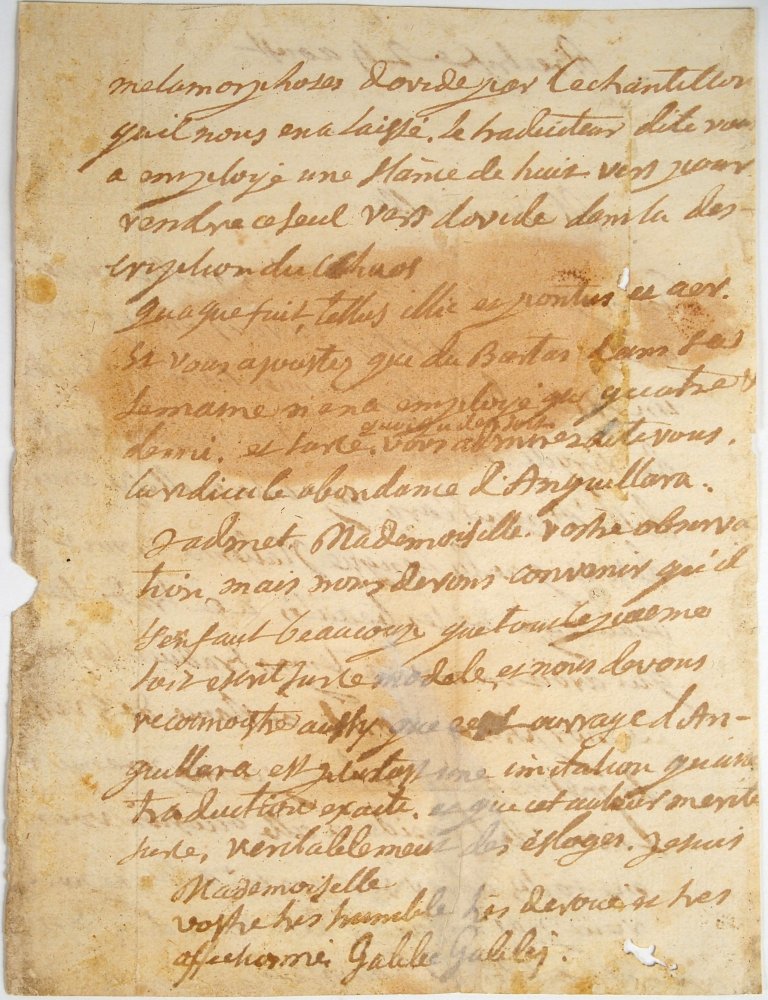 metamorphoses dovide par lechantillon
quil nous en a laissé. le traducteur dite vous
a employé une stance de huit vers pour
rendre ce seul vers dovide dans la des-
cription du cahos
quaque fuit, tellus illic et pontus et aer.
Et vous ajoustez que du Bartas dans sa
semaine n'en a employé que quatre &
quoiqu
demi. et sur ce, vous admirez dite vous.
la ridicule abondance d'Anguillara.
Jadmet, Mademoiselle. vostre observa
tion, mais nous devons convenir qu'il
sen faut beaucoup que tout le poeme
soit escrit sur ce modele, et nous devons
reconnoistre aussy que cet ouvrage d'An-
guillara est plutost une imitation qu'une
traduction exacte. et que cet auteur merite
sur ce, veritablement des esloges. Je suis
Mademoiselle
vostre tres humble tres devoue et tres
affectionné Galilee Galilej.